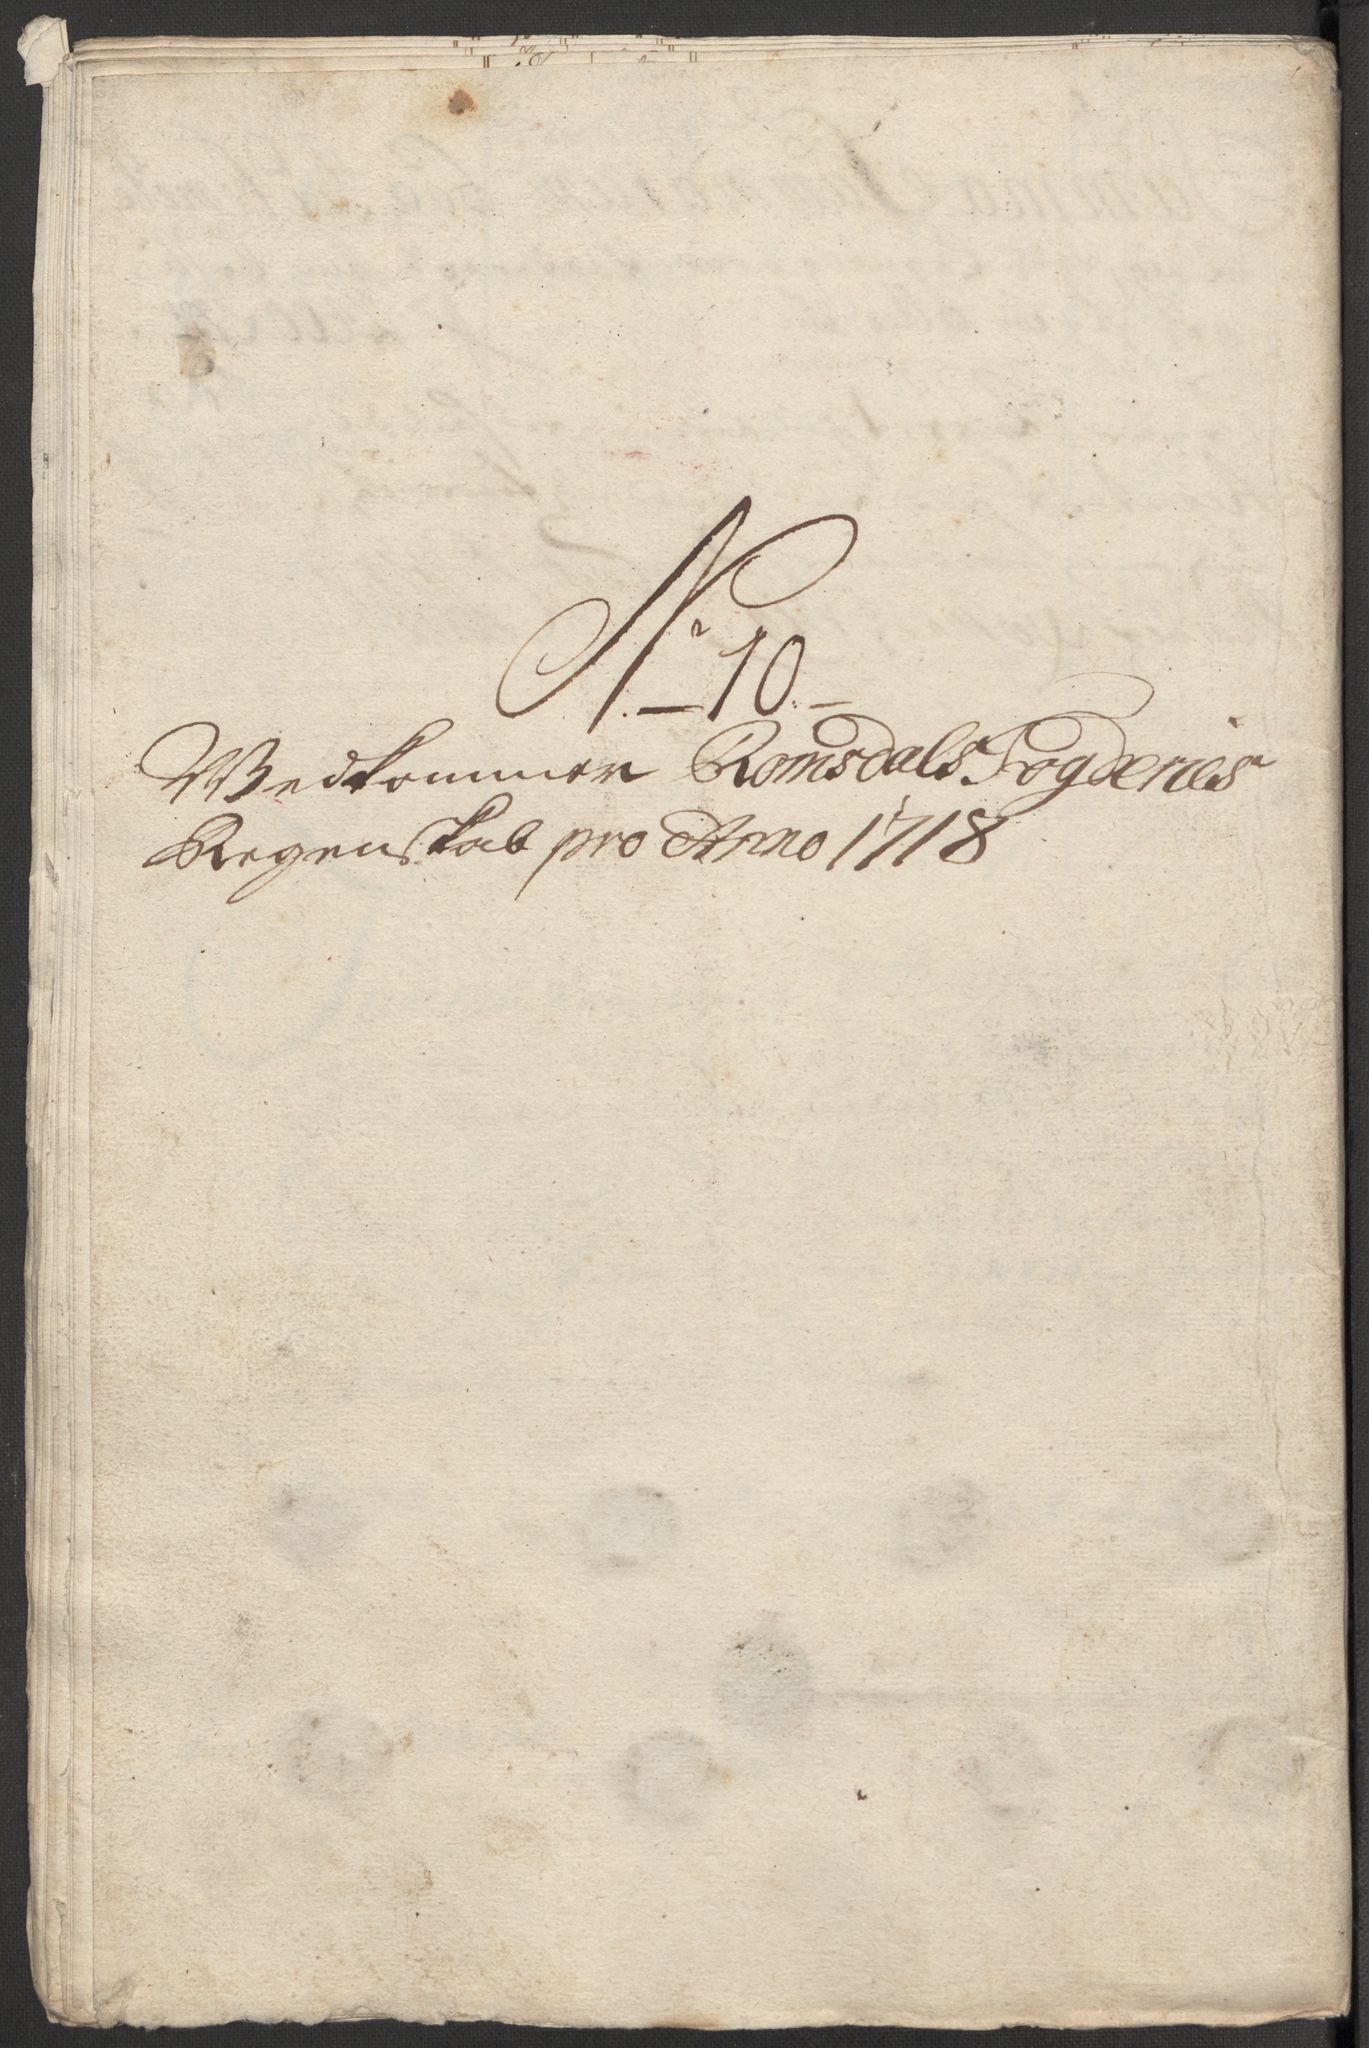 No 10
Vedkommer Romsdals Fogderies
Regenskab pro Anno 1718